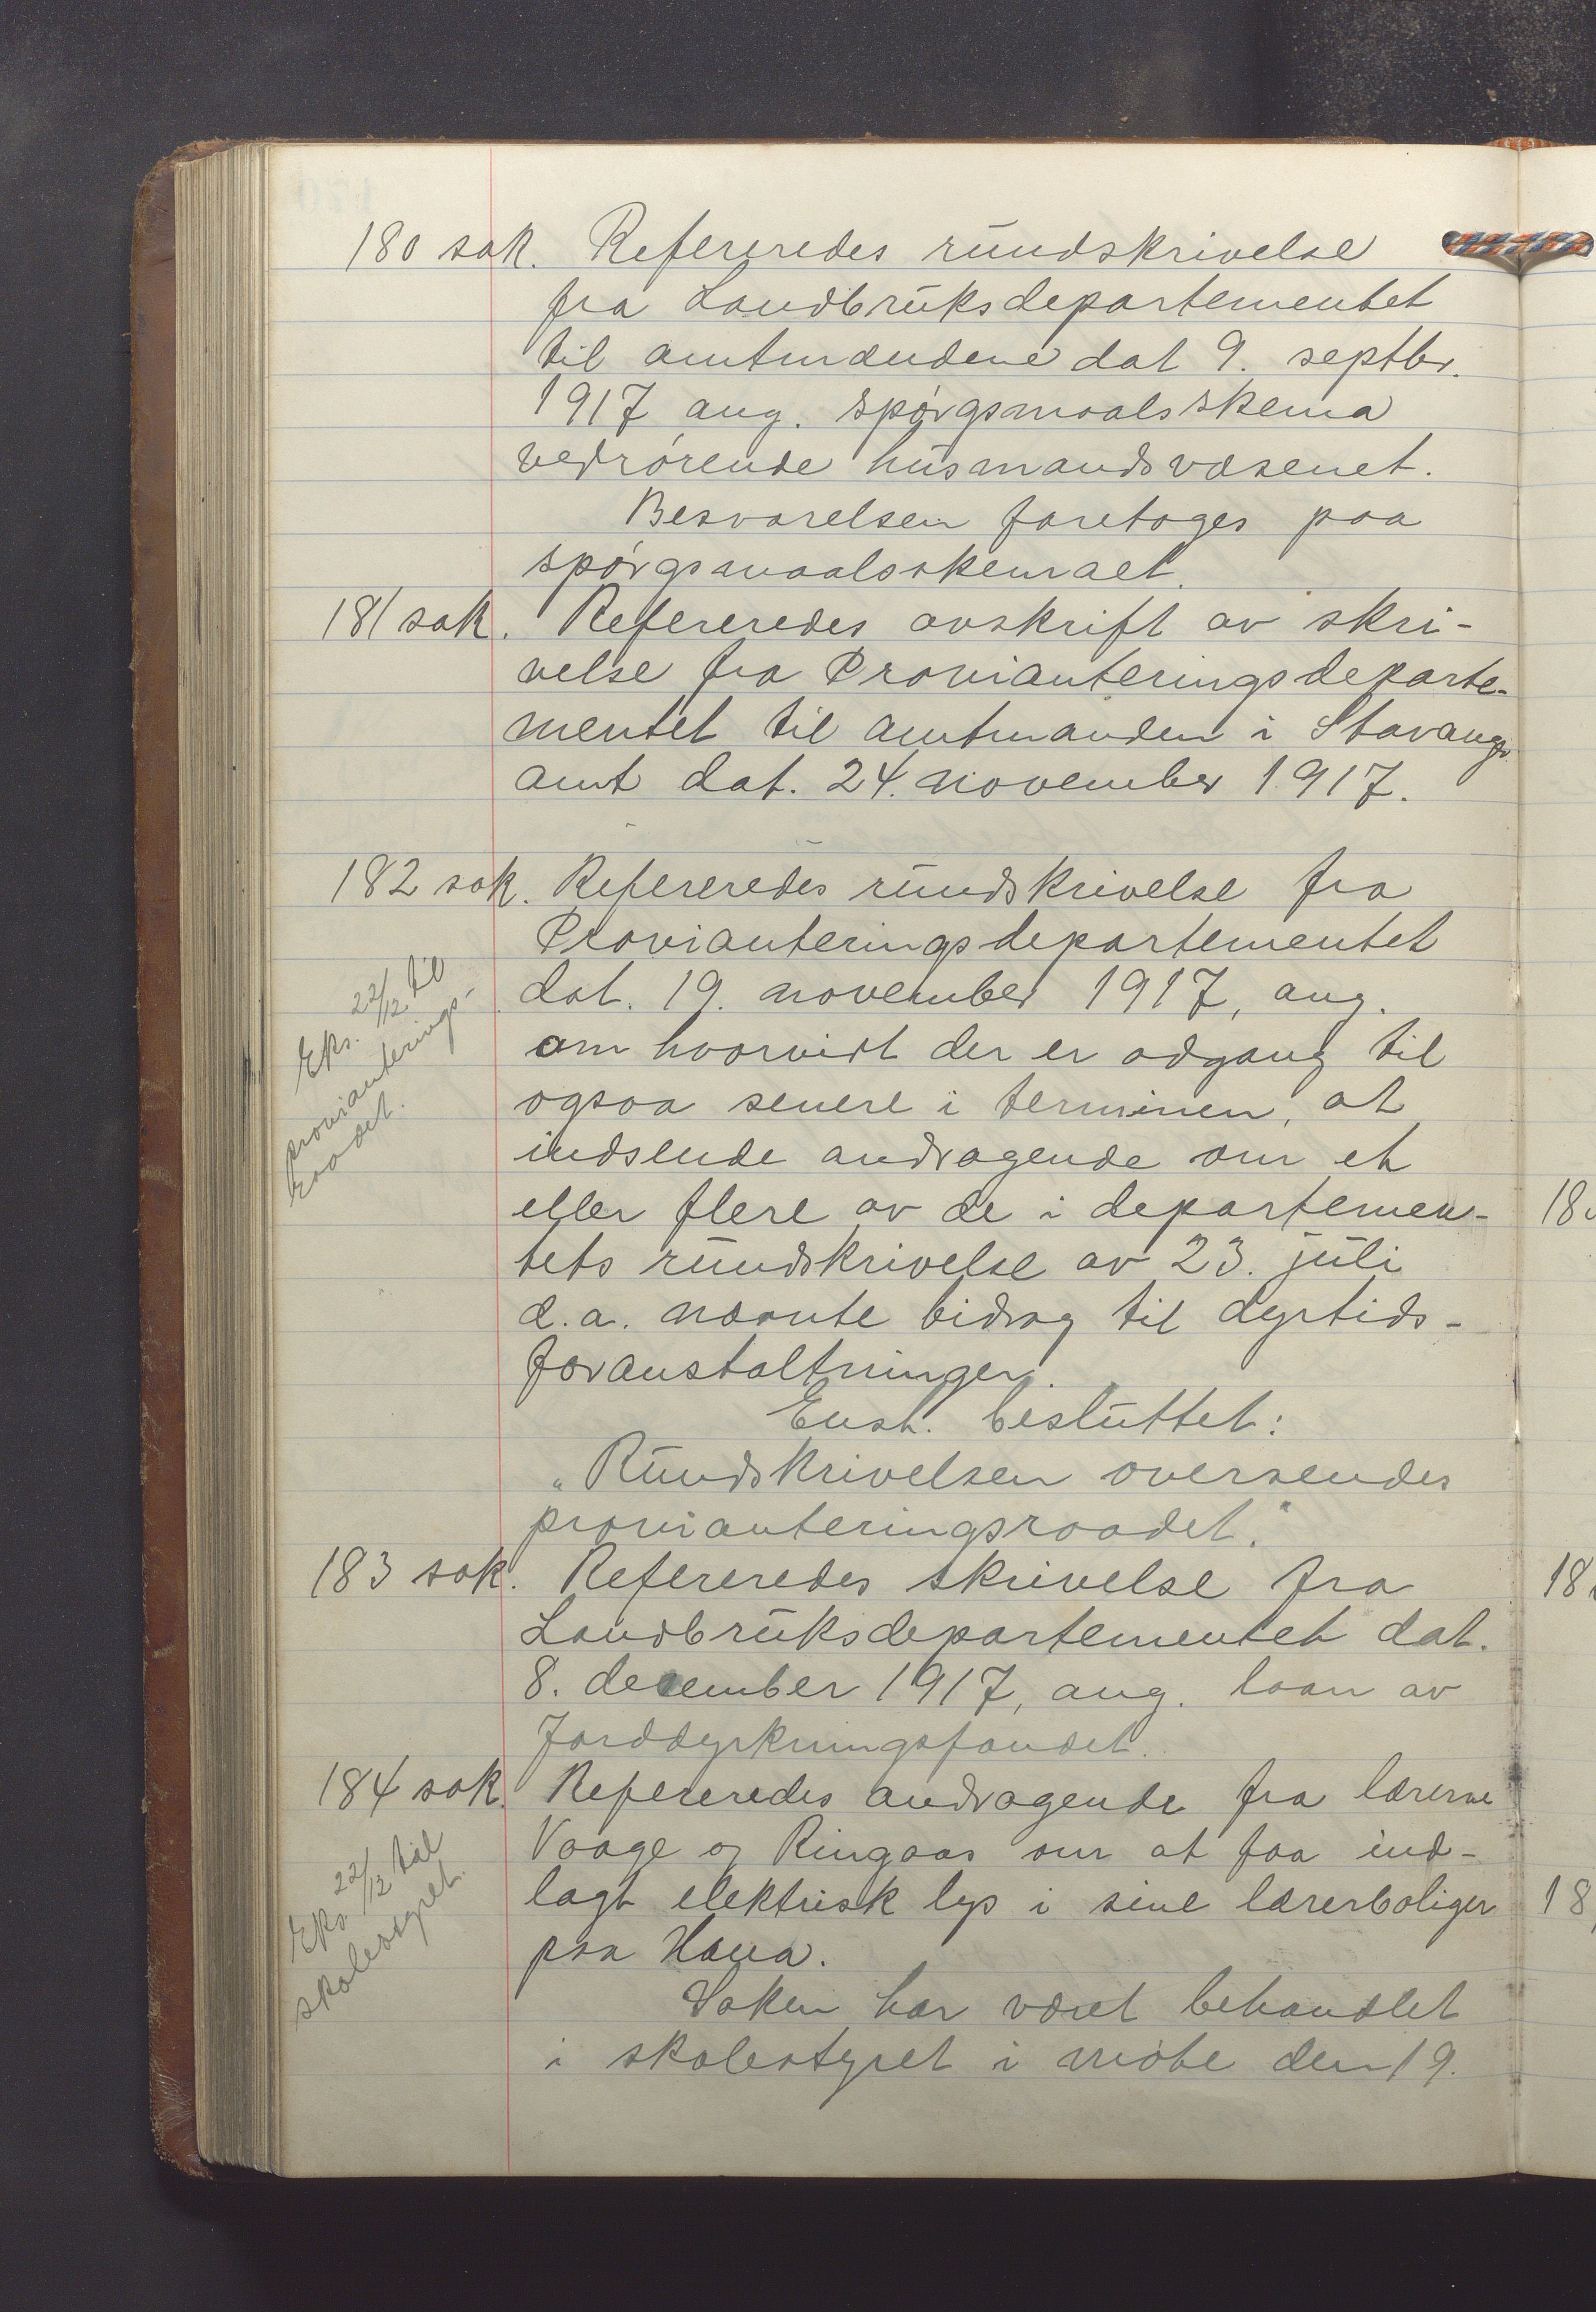 180 sak. Refereredes rundskrivelse
fra Landbruksdepartementet
til amtmændene dat 9. septbr.
1917 ang. spørgsmaalsskema
vedrørende husmandsvæsenet.
Besvarelsen foretoges paa
spørgsmaalsskemaet.
181 sak. Refereredes avskrift av skri-
velse fra Provianteringsdeparte-
mentet til amtmanden i Stavang.
amt dat. 24. november 1917.
182 sak. Refereredes rundskrivelse fra
Provianteringsdepartementet
dat. 19. november 1917, ang.
om hvorvidt der er adgang til
ogsaa senere i terminen, at
indsende andragende om et
eller flere av de i departemen-
tets rundskrivelse av 23. juli
d.a. nævnte bidrag til dyrtids-
foranstaltninger.
Enst. besluttet:
"Rundskrivelsen oversendes
provianteringsraadet."
Eks. 22/12 til
provianterings-
raadet.
183 sak. Refereredes skrivelse fra
Landbruksdepartementet dat.
8. december 1917, ang. laan av
Jorddyrkningsfondet.
184 sak. Refereredes andragende fra lærerne
Vaage og Ringaas om at faa ind-
lagt elektrisk lys i sine lærerboliger
paa Hana.
Saken har været behandlet
i skolestyret i møte den 19.
Eks. 22/12 til
skolestyret.
18
18
18